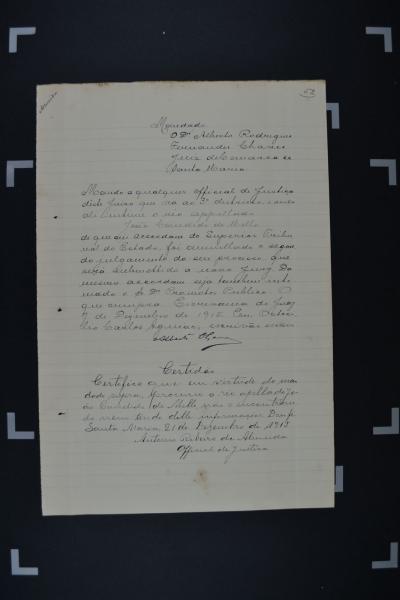 52
Mandado
O Dr Alberto Rodrigues
Fernandes Chaves
Juiz de Comarca de
Santa Maria
Mando a qualquer official de Justiça
deste Juizo que vá ao 3º districto
e o réo appellado
João Candido de Mello
de que um accordam do Superior Tribu
nal do Estado, foi annullado o
do julgamento do seu processo, que
será submettido a novo Jury. Do
mesmo accordam seja tambem inti
mado o Dr Promotor Publico. O
que cumpra.
7 de Dezembro de 1915. Eu,
Carlos escrivão
Alberto Chaves
Certidão
Certifico que em virtude do man
dado supra, procurei o réo appellado Jo
ão Candido de Mello não o encontran
do nem onde delle informações. Dou fé
Santa Maria, 21 de Dezembro de 1915
Antonio Ribeiro de Almeida
Official de Justiça